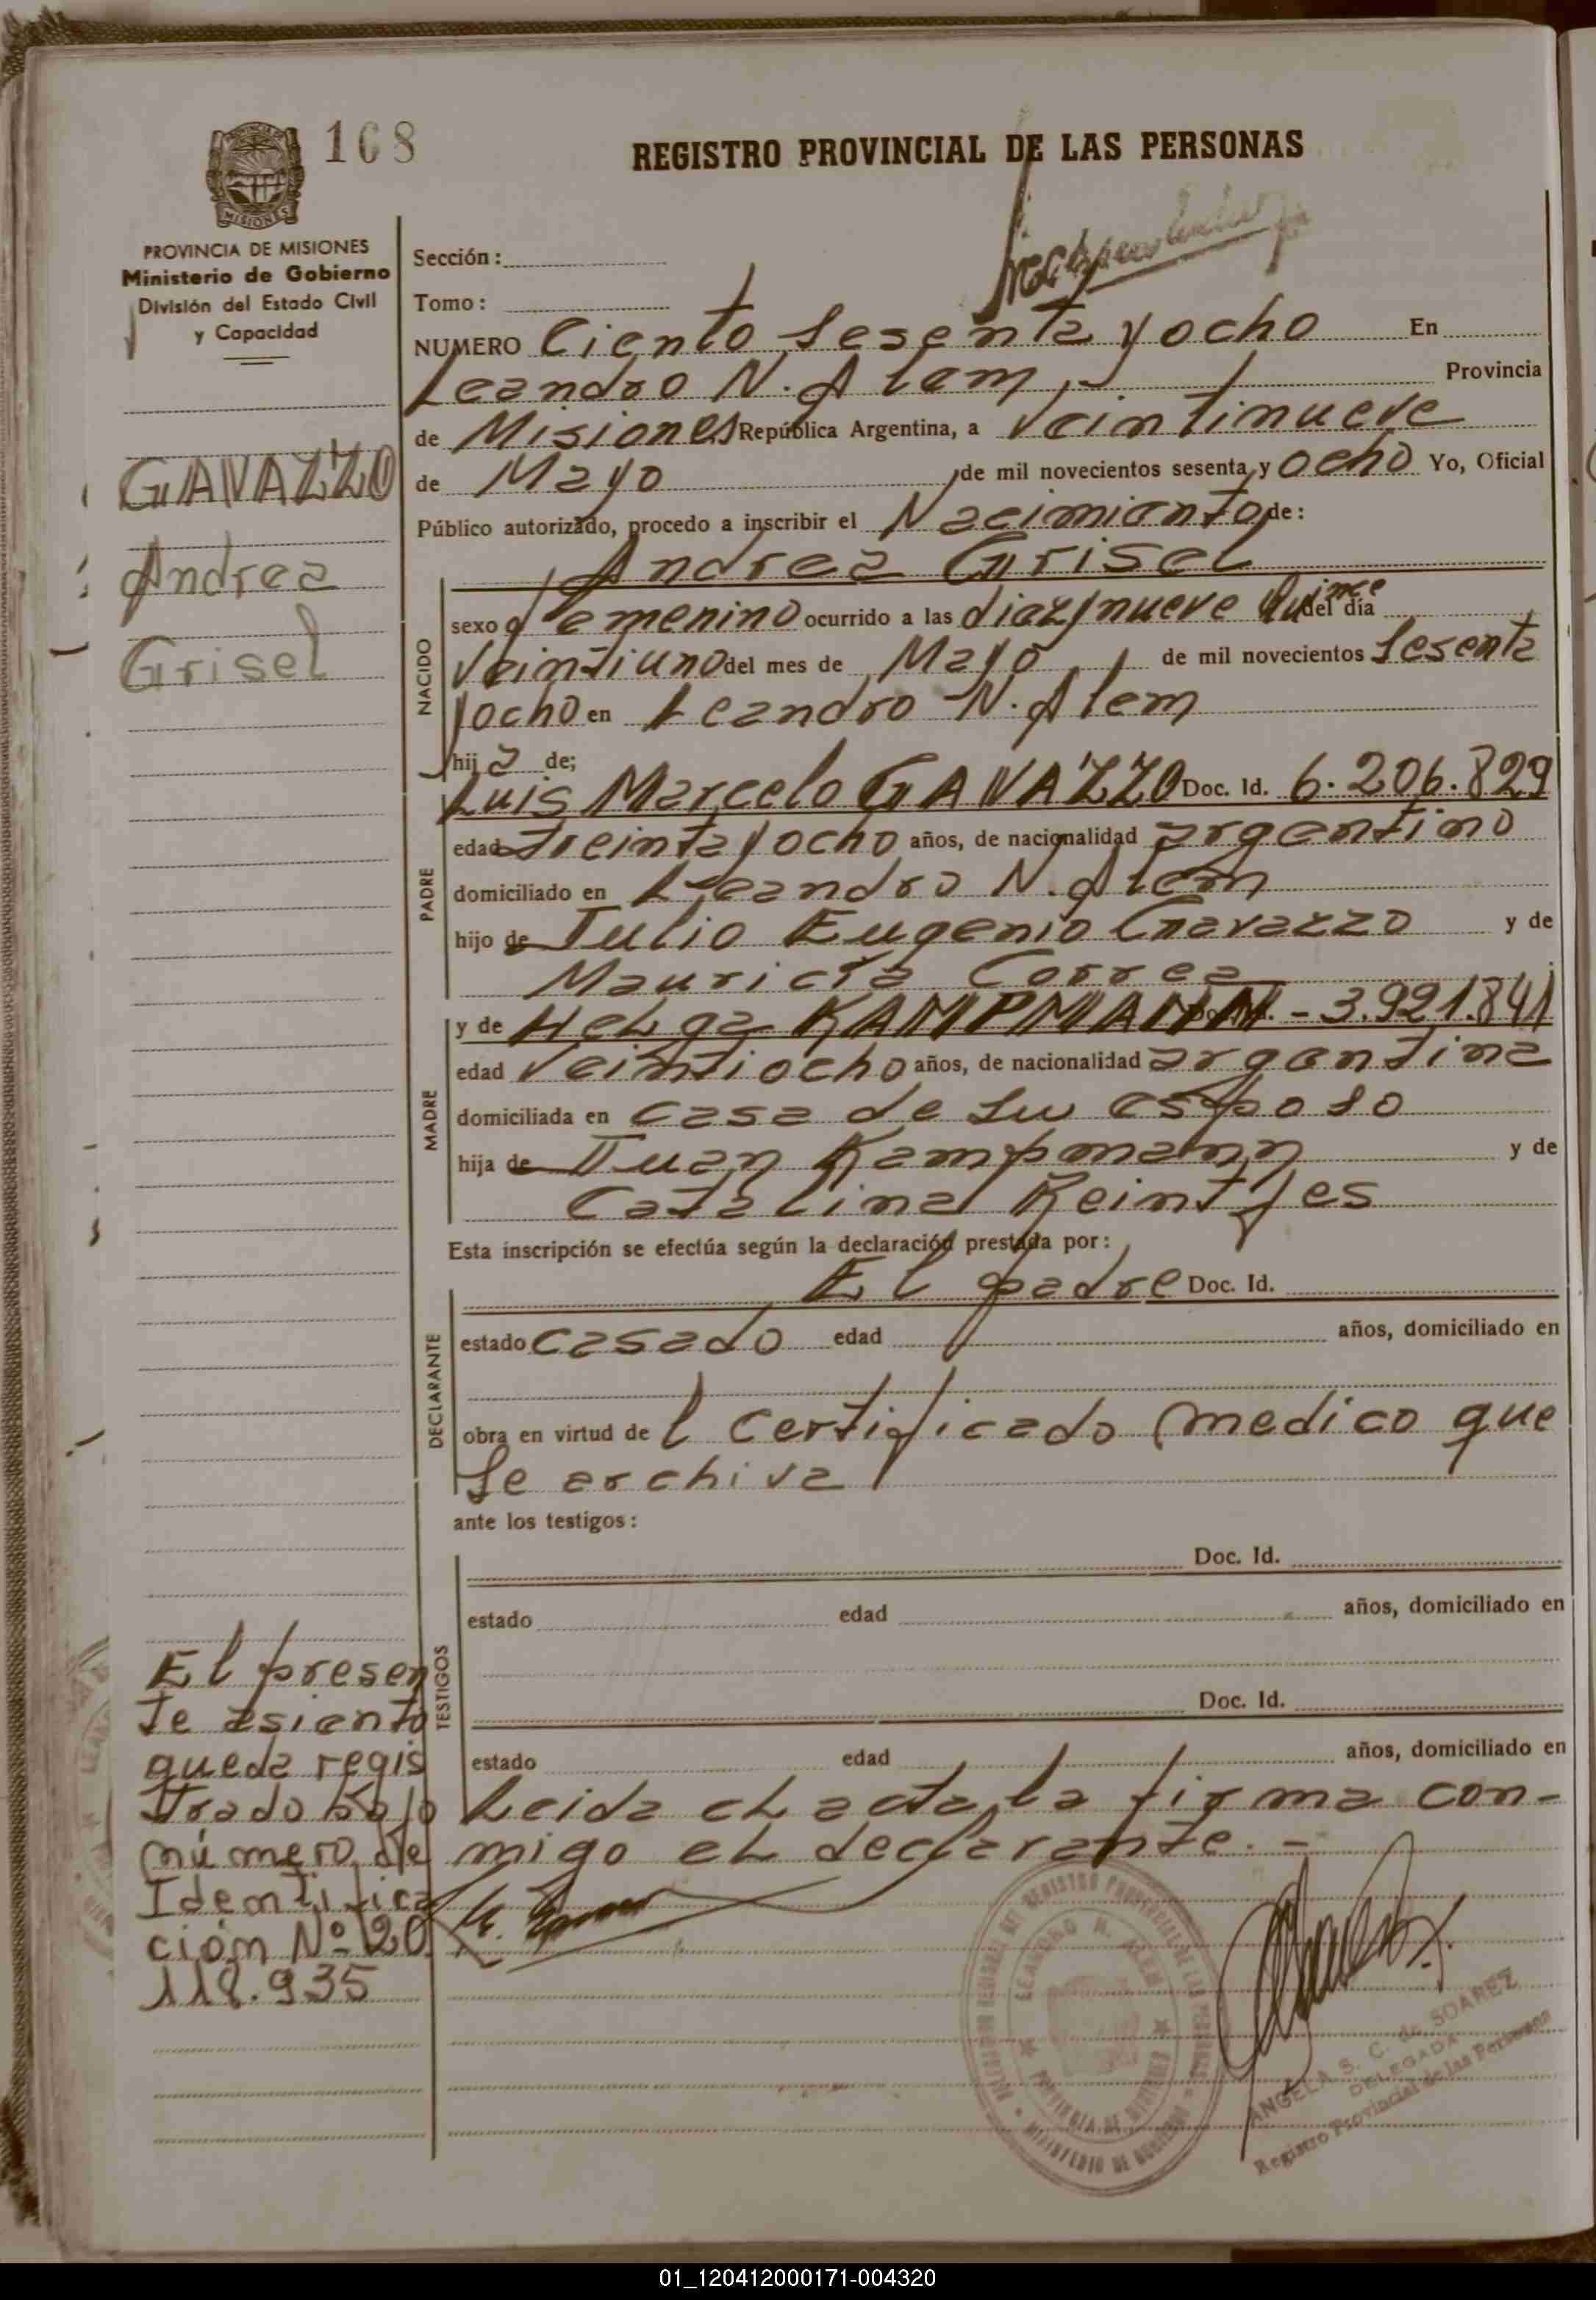 168
REGISTRO PROVINCIAL DE LAS PERSONAS
MISIONES
PROVINCIA DE MISIONES
Ministerio de Gobierno
División del Estado Civil
y Capacidad
GAVAZZO
Andrea
Grisel
Sección:
Tomo:
NUMERO Ciento Sesenta y ocho En
Leandro N. Alem, Provincia
de Misiones República Argentina, a Veintinueve
de Mayo de mil novecientos sesenta y ocho Yo, Oficial
Público autorizado, procedo a inscribir el Nacimiento de:
Andrea Grisel
NACIDO
sexo femenino ocurrido a las diez y nueve quince del día
Veintiuno del mes de Mayo de mil novecientos Sesenta
y ocho en Leandro N. Alem
hij a de;
PADRE
Luis Marcelo GAVAZZO Doc. Id. 6.206.829
edad treinta y ocho años, de nacionalidad argentino
domiciliado en Leandro N. Alem
hijo de Julio Eugenio Gavazzo y de
Mauricia Correa
MADRE
y de Helga KAMPMANN - 3.921.841
edad Veintiocho años, de nacionalidad argentina
domiciliada en casa de su esposo
hija de Juan Kampmann y de
Catalina Reintjes
Esta inscripción se efectúa según la declaración prestada por:
DECLARANTE
El padre Doc. Id.
estado casado edad años, domiciliado en
obra en virtud de l certificado medico que
se archiva
ante los testigos:
TESTIGOS
Doc. Id.
estado edad años, domiciliado en
Doc. Id.
estado edad años, domiciliado en
Leida el acta, la firma con-
migo el declarante. -
El presen
te asiento
queda regis
trado bajo
número de
Identifica
ción Nº 20
118.935
LEANDRO N. ALEM
PROVINCIA DE MISIONES
MINISTERIO DE GOBIERNO
ANGELA S. C. de SOAREZ
DELEGADA
Registro Provincial de las Personas
01_120412000171-004320